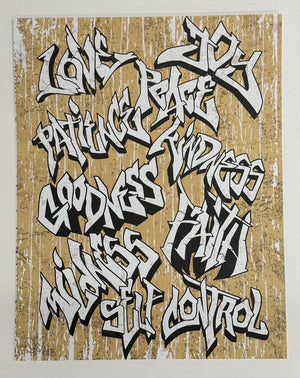 LOVE
JOY
PEACE
PATIENCE
KINDNESS
GOODNESS
FAITH
MILDNESS
SELF CONTROL